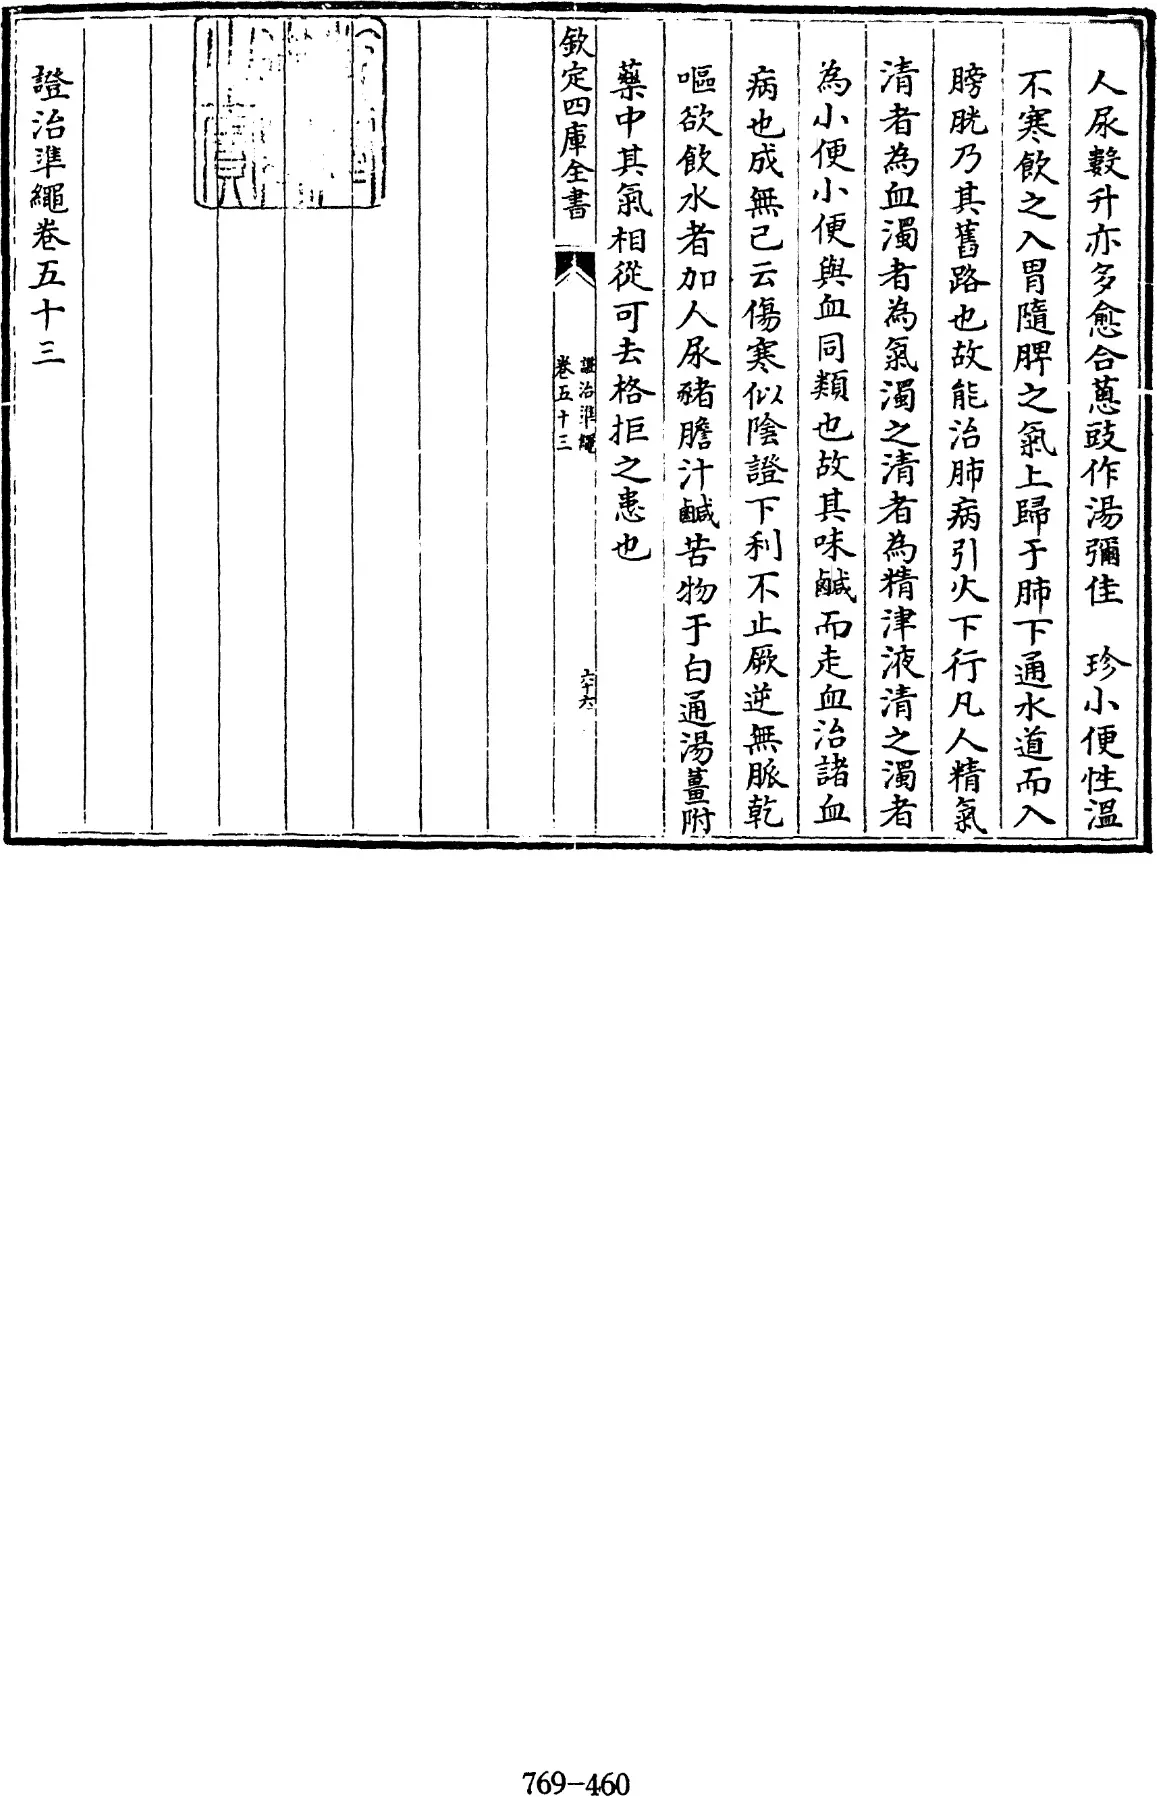 人尿數升亦多愈合蔥豉作湯彌佳　珍小便性溫
不寒飲之入胃隨脾之氣上歸于肺下通水道而入
膀胱乃其舊路也故能治肺病引火下行凡人精氣
清者為血濁者為氣濁之清者為精津液清之濁者
為小便小便與血同類也故其味鹹而走血治諸血
病也成無己云傷寒似陰證下利不止厥逆無脈乾
嘔欲飲水者加人尿豬膽汁鹹苦物于白通湯薑附
藥中其氣相從可去格拒之患也
欽定四庫全書
證治準繩
卷五十三
六十六
證治準繩卷五十三
769-460